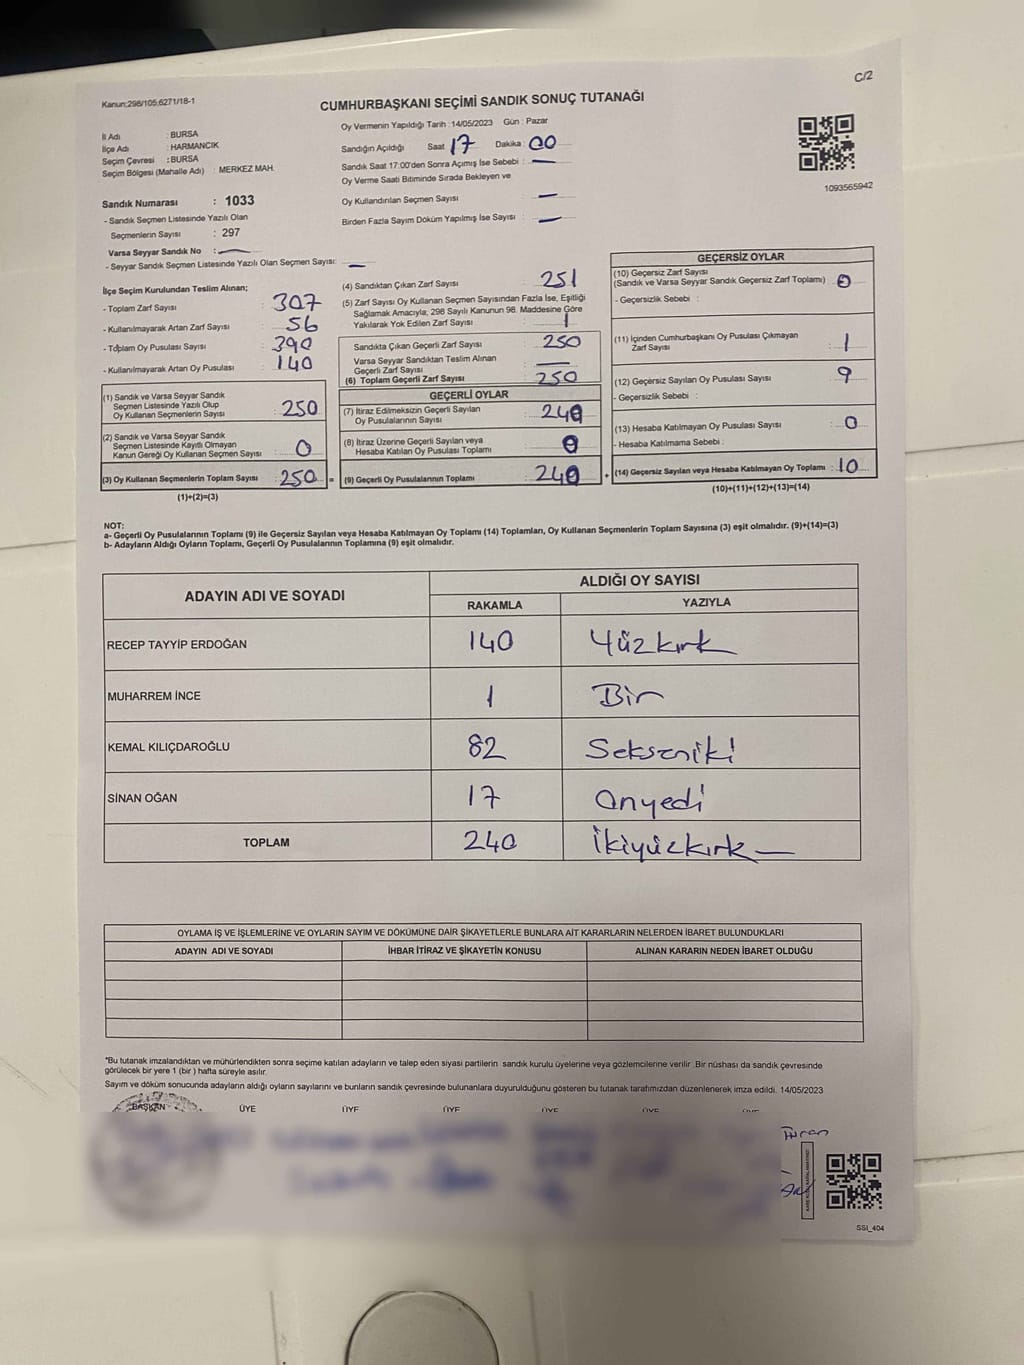 C/2
Kanun:298/105;6271/18-1
CUMHURBAŞKANI SEÇİMİ SANDIK SONUÇ TUTANAĞI
İl Adı : BURSA
İlçe Adı : HARMANCIK
Seçim Çevresi : BURSA
Seçim Bölgesi (Mahalle Adı) : MERKEZ MAH.
Sandık Numarası : 1033
- Sandık Seçmen Listesinde Yazılı Olan
Seçmenlerin Sayısı : 297
Varsa Seyyar Sandık No :
- Seyyar Sandık Seçmen Listesinde Yazılı Olan Seçmen Sayısı:
Oy Vermenin Yapıldığı Tarih : 14/05/2023 Gün : Pazar
Sandığın Açıldığı Saat 17 Dakika : 00
Sandık Saat 17:00'den Sonra Açımış İse Sebebi :
Oy Verme Saati Bitiminde Sırada Bekleyen ve
Oy Kullandırılan Seçmen Sayısı :
Birden Fazla Sayım Döküm Yapılmış İse Sayısı :
1093565942
İlçe Seçim Kurulundan Teslim Alınan;
- Toplam Zarf Sayısı : 307
- Kullanılmayarak Artan Zarf Sayısı : 56
- Toplam Oy Pusulası Sayısı : 390
- Kullanılmayarak Artan Oy Pusulası : 140
(1) Sandık ve Varsa Seyyar Sandık
Seçmen Listesinde Yazılı Olup
Oy Kullanan Seçmenlerin Sayısı : 250
(2) Sandık ve Varsa Seyyar Sandık
Seçmen Listesinde Kayıtlı Olmayan
Kanun Gereği Oy Kullanan Seçmen Sayısı : 0
(3) Oy Kullanan Seçmenlerin Toplam Sayısı : 250 =
(1)+(2)=(3)
(4) Sandıktan Çıkan Zarf Sayısı : 251
(5) Zarf Sayısı Oy Kullanan Seçmen Sayısından Fazla İse, Eşitliği
Sağlamak Amacıyla; 298 Sayılı Kanunun 98. Maddesine Göre
Yakılarak Yok Edilen Zarf Sayısı : 1
Sandıkta Çıkan Geçerli Zarf Sayısı : 250
Varsa Seyyar Sandıktan Teslim Alınan
Geçerli Zarf Sayısı :
(6) Toplam Geçerli Zarf Sayısı : 250
GEÇERLİ OYLAR
(7) İtiraz Edilmeksizin Geçerli Sayılan
Oy Pusulalarının Sayısı : 240
(8) İtiraz Üzerine Geçerli Sayılan veya
Hesaba Katılan Oy Pusulası Toplamı : 0
(9) Geçerli Oy Pusulalarının Toplamı : 240 +
GEÇERSİZ OYLAR
(10) Geçersiz Zarf Sayısı
(Sandık ve Varsa Seyyar Sandık Geçersiz Zarf Toplamı) : 0
- Geçersizlik Sebebi :
(11) İçinden Cumhurbaşkanı Oy Pusulası Çıkmayan
Zarf Sayısı : 1
(12) Geçersiz Sayılan Oy Pusulası Sayısı : 9
- Geçersizlik Sebebi :
(13) Hesaba Katılmayan Oy Pusulası Sayısı : 0
- Hesaba Katılmama Sebebi :
(14) Geçersiz Sayılan veya Hesaba Katılmayan Oy Toplamı : 10
(10)+(11)+(12)+(13)=(14)
NOT:
a- Geçerli Oy Pusulalarının Toplamı (9) ile Geçersiz Sayılan veya Hesaba Katılmayan Oy Toplamı (14) Toplamları, Oy Kullanan Seçmenlerin Toplam Sayısına (3) eşit olmalıdır. (9)+(14)=(3)
b- Adayların Aldığı Oyların Toplamı, Geçerli Oy Pusulalarının Toplamına (9) eşit olmalıdır.
ADAYIN ADI VE SOYADI ALDIĞI OY SAYISI
RAKAMLA YAZIYLA
RECEP TAYYİP ERDOĞAN 140 Yüzkırk
MUHARREM İNCE 1 Bir
KEMAL KILIÇDAROĞLU 82 Sekseniki
SİNAN OĞAN 17 Onyedi
TOPLAM 240 İkiyüzkırk
OYLAMA İŞ VE İŞLEMLERİNE VE OYLARIN SAYIM VE DÖKÜMÜNE DAİR ŞİKAYETLERLE BUNLARA AİT KARARLARIN NELERDEN İBARET BULUNDUKLARI
ADAYIN ADI VE SOYADI İHBAR İTİRAZ VE ŞİKAYETİN KONUSU ALINAN KARARIN NEDEN İBARET OLDUĞU
*Bu tutanak imzalandıktan ve mühürlendikten sonra seçime katılan adayların ve talep eden siyasi partilerin sandık kurulu üyelerine veya gözlemcilerine verilir .Bir nüshası da sandık çevresinde
görülecek bir yere 1 (bir ) hafta süreyle asılır.
Sayım ve döküm sonucunda adayların aldığı oyların sayılarını ve bunların sandık çevresinde bulunanlara duyurulduğunu gösteren bu tutanak tarafımızdan düzenlenerek imza edildi. 14/05/2023
BAŞKAN ÜYE ÜYE ÜYE ÜYE ÜYE
SSI_404